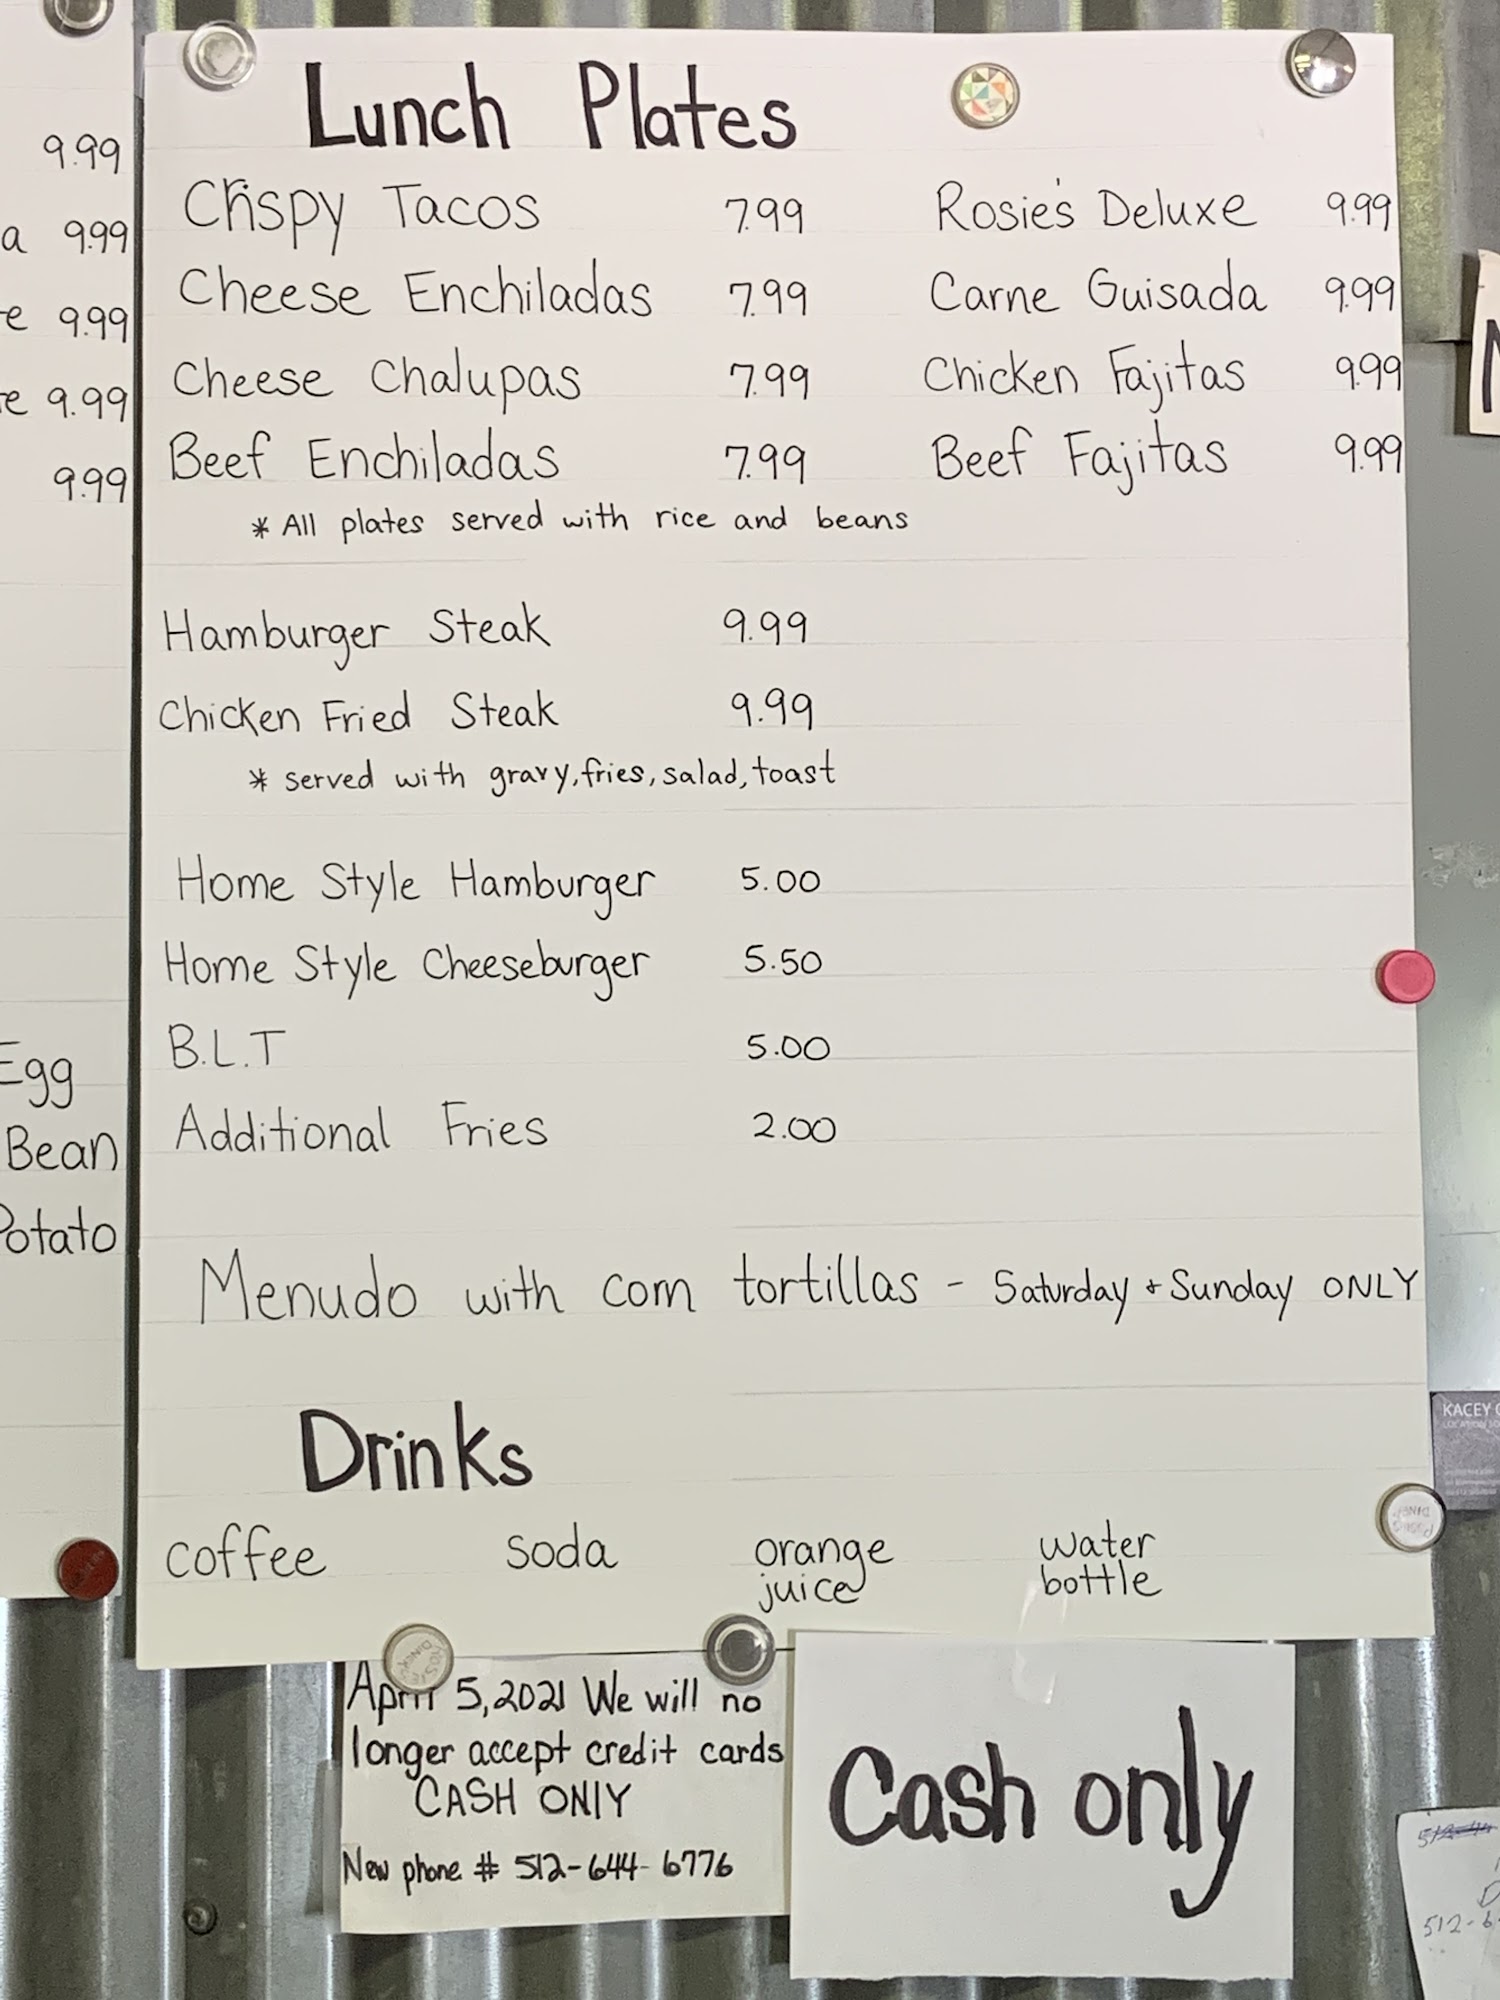 9.99
a 9.99
e 9.99
e 9.99
9.99
Egg
Bean
Potato
Lunch Plates
Crispy Tacos 7.99 Rosie's Deluxe 9.99
Cheese Enchiladas 7.99 Carne Guisada 9.99
Cheese Chalupas 7.99 Chicken Fajitas 9.99
Beef Enchiladas 7.99 Beef Fajitas 9.99
* All plates served with rice and beans
Hamburger Steak 9.99
Chicken Fried Steak 9.99
* served with gravy, fries, salad, toast
Home Style Hamburger 5.00
Home Style Cheeseburger 5.50
B.L.T 5.00
Additional Fries 2.00
Menudo with corn tortillas - Saturday + Sunday ONLY
Drinks
coffee soda orange juice water bottle
April 5, 2021 We will no
longer accept credit cards
CASH ONLY
New phone # 512-644-6776
Cash only
KACEY
512-6